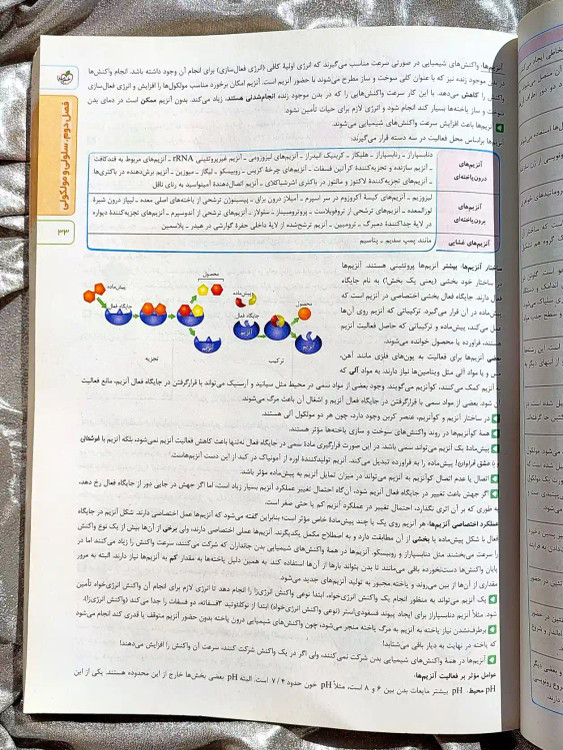 آنزیم‌ها، واکنش‌های شیمیایی در صورتی سرعت مناسب می‌گیرند که انرژی اولیهٔ کافی (انرژی فعال‌سازی) برای انجام آن وجود داشته باشد. انجام واکنش‌ها
در بدن موجود زنده نیز که با عنوان کلی سوخت و ساز مطرح می‌شوند با حضور آنزیم است. آنزیم امکان برخورد مناسب مولکول‌ها را افزایش و انرژی فعال‌سازی
را کاهش می‌دهد. با این کار سرعت واکنش‌هایی را که در بدن موجود زنده انجام‌شدنی هستند، زیاد می‌کند. بدون آنزیم ممکن است در دمای بدن
سوخت و ساز یاخته‌ها بسیار کند انجام شود و انرژی لازم برای حیات تأمین نشود.
آنزیم‌ها باعث افزایش سرعت واکنش‌های شیمیایی می‌شوند.
آنزیم‌ها براساس محل فعالیت در سه دسته قرار می‌گیرند:
فصل دوم، سلولی و مولکولی
۳۳
آنزیم‌های درون‌یاخته‌ای
دنابسپاراز ـ رنابسپاراز ـ هلیکاز ـ کربنیک انیدراز ـ آنزیم‌های لیزوزومی ـ آنزیم غیرپروتئینی rRNA ـ آنزیم‌های مربوط به قندکافت
ـ آنزیم سازنده و تجزیه‌کنندهٔ کرآتین فسفات ـ آنزیم‌های چرخهٔ کربس ـ روبیسکو ـ لیگاز ـ میوزین ـ آنزیم برش‌دهنده در باکتری‌ها
ـ آنزیم‌های تجزیه‌کنندهٔ لاکتوز و مالتوز در باکتری اشرشیاکلای ـ آنزیم اتصال‌دهندهٔ آمینواسید به رنای ناقل
آنزیم‌های برون‌یاخته‌ای
لیزوزیم ـ آنزیم‌های کیسهٔ آکروزوم در سر اسپرم ـ آمیلاز درون بزاق ـ پپسینوژن ترشحی از یاخته‌های اصلی معده ـ لیپاز درون شیرهٔ
لوزالمعده ـ آنزیم‌های ترشحی از تروفوبلاست ـ پروترومبیناز ـ سلولاز ـ آنزیم‌های ترشحی از آندوسپرم ـ آنزیم‌های تجزیه‌کنندهٔ دیواره
در لایهٔ جداکنندهٔ دمبرگ ـ ترومبین ـ آنزیم ترشح‌شده از لایهٔ داخلی حفرهٔ گوارشی در هیدر ـ پلاسمین
آنزیم‌های غشایی
مانند پمپ سدیم ـ پتاسیم
ساختار آنزیم‌ها: بیشتر آنزیم‌ها پروتئینی هستند. آنزیم‌ها
در ساختار خود بخشی (یعنی یک بخش) به نام جایگاه
فعال دارند. جایگاه فعال بخشی اختصاصی در آنزیم است که
پیش‌ماده در آن قرار می‌گیرد. ترکیباتی که آنزیم روی آن‌ها
عمل می‌کند، پیش‌ماده و ترکیباتی که حاصل فعالیت آنزیم
هستند، فراورده یا محصول خوانده می‌شوند.
بعضی آنزیم‌ها برای فعالیت به یون‌های فلزی مانند آهن،
مس و یا مواد آلی مثل ویتامین‌ها نیاز دارند. به مواد آلی که
پیش‌ماده
جایگاه فعال
آنزیم
محصول
آنزیم
تجزیه
پیش‌ماده
جایگاه فعال
آنزیم
محصول
آنزیم
ترکیب
به آنزیم کمک می‌کنند، کوآنزیم می‌گویند. وجود بعضی از مواد سمی در محیط مثل سیانید و آرسنیک می‌تواند با قرارگرفتن در جایگاه فعال آنزیم، مانع فعالیت
آن شود. بعضی از مواد سمی با قرارگرفتن در جایگاه فعال آنزیم و اشغال آن باعث مرگ می‌شوند.
در ساختار آنزیم و کوآنزیم، عنصر کربن وجود دارد، چون هر دو مولکول آلی هستند.
همهٔ کوآنزیم‌ها در روند واکنش‌های سوخت و سازی یاخته‌ها مؤثر هستند.
پیش‌مادهٔ یک آنزیم می‌تواند سمی باشد. در این صورت قرارگیری مادهٔ سمی در جایگاه فعال نه‌تنها باعث کاهش فعالیت آنزیم نمی‌شود، بلکه آنزیم با
پیش‌ماده را به فراورده تبدیل می‌کند. آنزیم تولیدکنندهٔ اوره از آمونیاک در کبد از این دست آنزیم‌هاست.
اتصال یا عدم اتصال کوآنزیم به آنزیم می‌تواند در میزان تمایل آنزیم به پیش‌ماده مؤثر باشد.
اگر جهش باعث تغییر در جایگاه فعال آنزیم شود، آن‌گاه احتمال تغییر عملکرد آنزیم بسیار زیاد است، اما اگر جهش در جایی دور از جایگاه فعال رخ دهد،
به طوری که بر آن اثری نگذارد، احتمال تغییر در عملکرد آنزیم کم یا حتی صفر است.
عملکرد اختصاصی آنزیم‌ها: هر آنزیم روی یک یا چند پیش‌مادهٔ خاص مؤثر است؛ بنابراین گفته می‌شود که آنزیم‌ها عمل اختصاصی دارند. شکل آنزیم در جایگاه
فعال با شکل پیش‌ماده یا بخشی از آن مطابقت دارد و به اصطلاح مکمل یکدیگرند. آنزیم‌ها عملی اختصاصی دارند، ولی برخی از آن‌ها بیش از یک نوع واکنش
را سرعت می‌بخشند مثل دنابسپاراز و روبیسکو. آنزیم‌ها در همهٔ واکنش‌های شیمیایی بدن جانداران که شرکت می‌کنند، سرعت واکنش را زیاد می‌کنند اما در
پایان واکنش‌ها دست‌نخورده باقی می‌مانند تا بدن بتواند بارها از آن‌ها استفاده کند. به همین دلیل یاخته‌ها به مقدار کم به آنزیم‌ها نیاز دارند. البته به مرور
مقداری از آن‌ها از بین می‌روند و یاخته مجبور به تولید آنزیم‌های جدید می‌شود.
یک آنزیم می‌تواند به منظور انجام یک واکنش انرژی‌خواه، ابتدا نوعی واکنش انرژی‌زا را انجام دهد تا انرژی لازم برای انجام آن واکنش انرژی‌خواه تأمین
شود. مثلاً آنزیم دنابسپاراز برای ایجاد پیوند فسفودی‌استر (نوعی واکنش انرژی‌خواه) ابتدا از نوکلئوتید ۳فسفاته، دو فسفات را جدا می‌کند (واکنش انرژی‌زا).
برطرف‌شدن نیاز یاخته به آنزیم به مرگ یاخته منجر می‌شود، چون واکنش‌های شیمیایی درون یاخته بدون حضور آنزیم متوقف یا قدری کند انجام می‌شود
که یاخته در نهایت به دیار باقی می‌شتابد!
آنزیم‌ها در همهٔ واکنش‌های شیمیایی بدن شرکت نمی‌کنند، ولی اگر در یک واکنش شرکت کنند، سرعت آن واکنش را افزایش می‌دهند!
عوامل مؤثر بر فعالیت آنزیم‌ها:
pH محیط: pH بیشتر مایعات بدن بین ۶ و ۸ است، مثلاً pH خون حدود ۷/۴ است. البته pH بعضی بخش‌ها خارج از این محدوده هستند. یکی از این